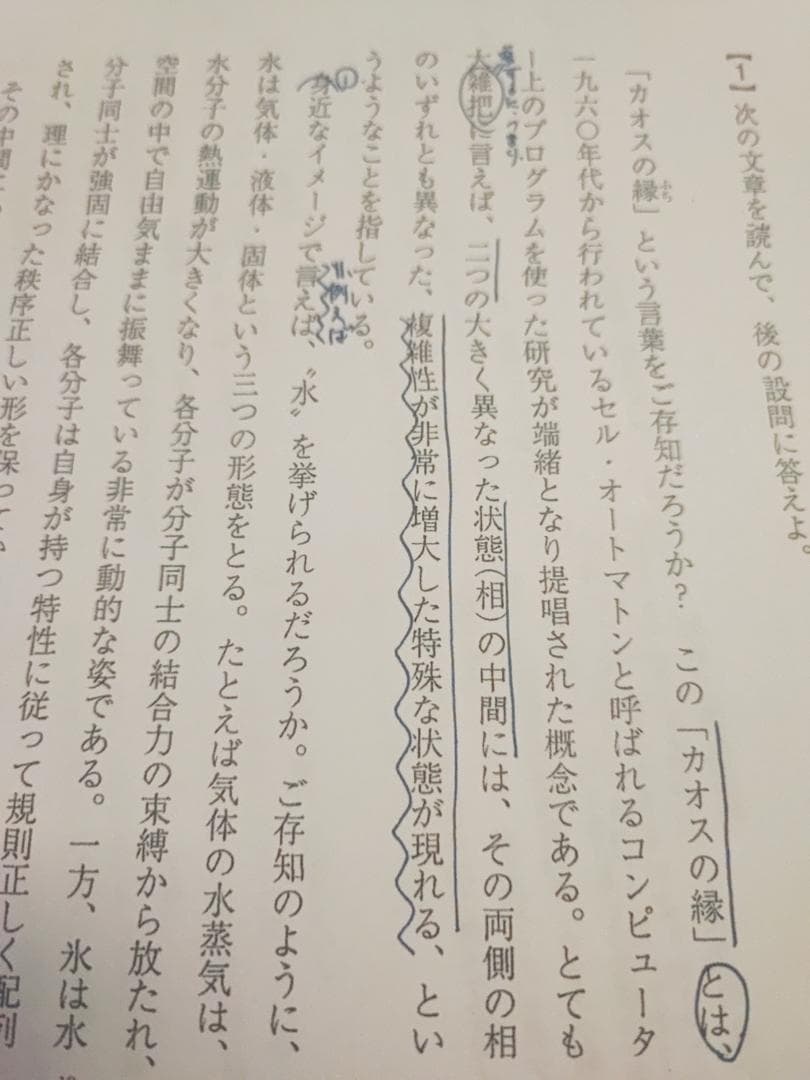 【1】次の文章を読んで、後の設問に答えよ。
「カオスの縁」という言葉をご存知だろうか? この「カオスの縁」とは、
ふち
一九六〇年代から行われているセル・オートマトンと呼ばれるコンピュータ
ー上のプログラムを使った研究が端緒となり提唱された概念である。とても
大雑把に言えば、二つの大きく異なった状態(相)の中間には、その両側の相
のいずれとも異なった、複雑性が非常に増大した特殊な状態が現れる、とい
うようなことを指している。
①
身近なイメージで言えば、〝水〟を挙げられるだろうか。ご存知のように、
例えば
水は気体・液体・固体という三つの形態をとる。たとえば気体の水蒸気は、
水分子の熱運動が大きくなり、各分子が分子同士の結合力の束縛から放たれ、
空間の中で自由気ままに振舞っている非常に動的な姿である。一方、氷は水
分子同士が強固に結合し、各分子は自身が持つ特性に従って規則正しく配列
され、理にかなった秩序正しい形を保ってい
その中間